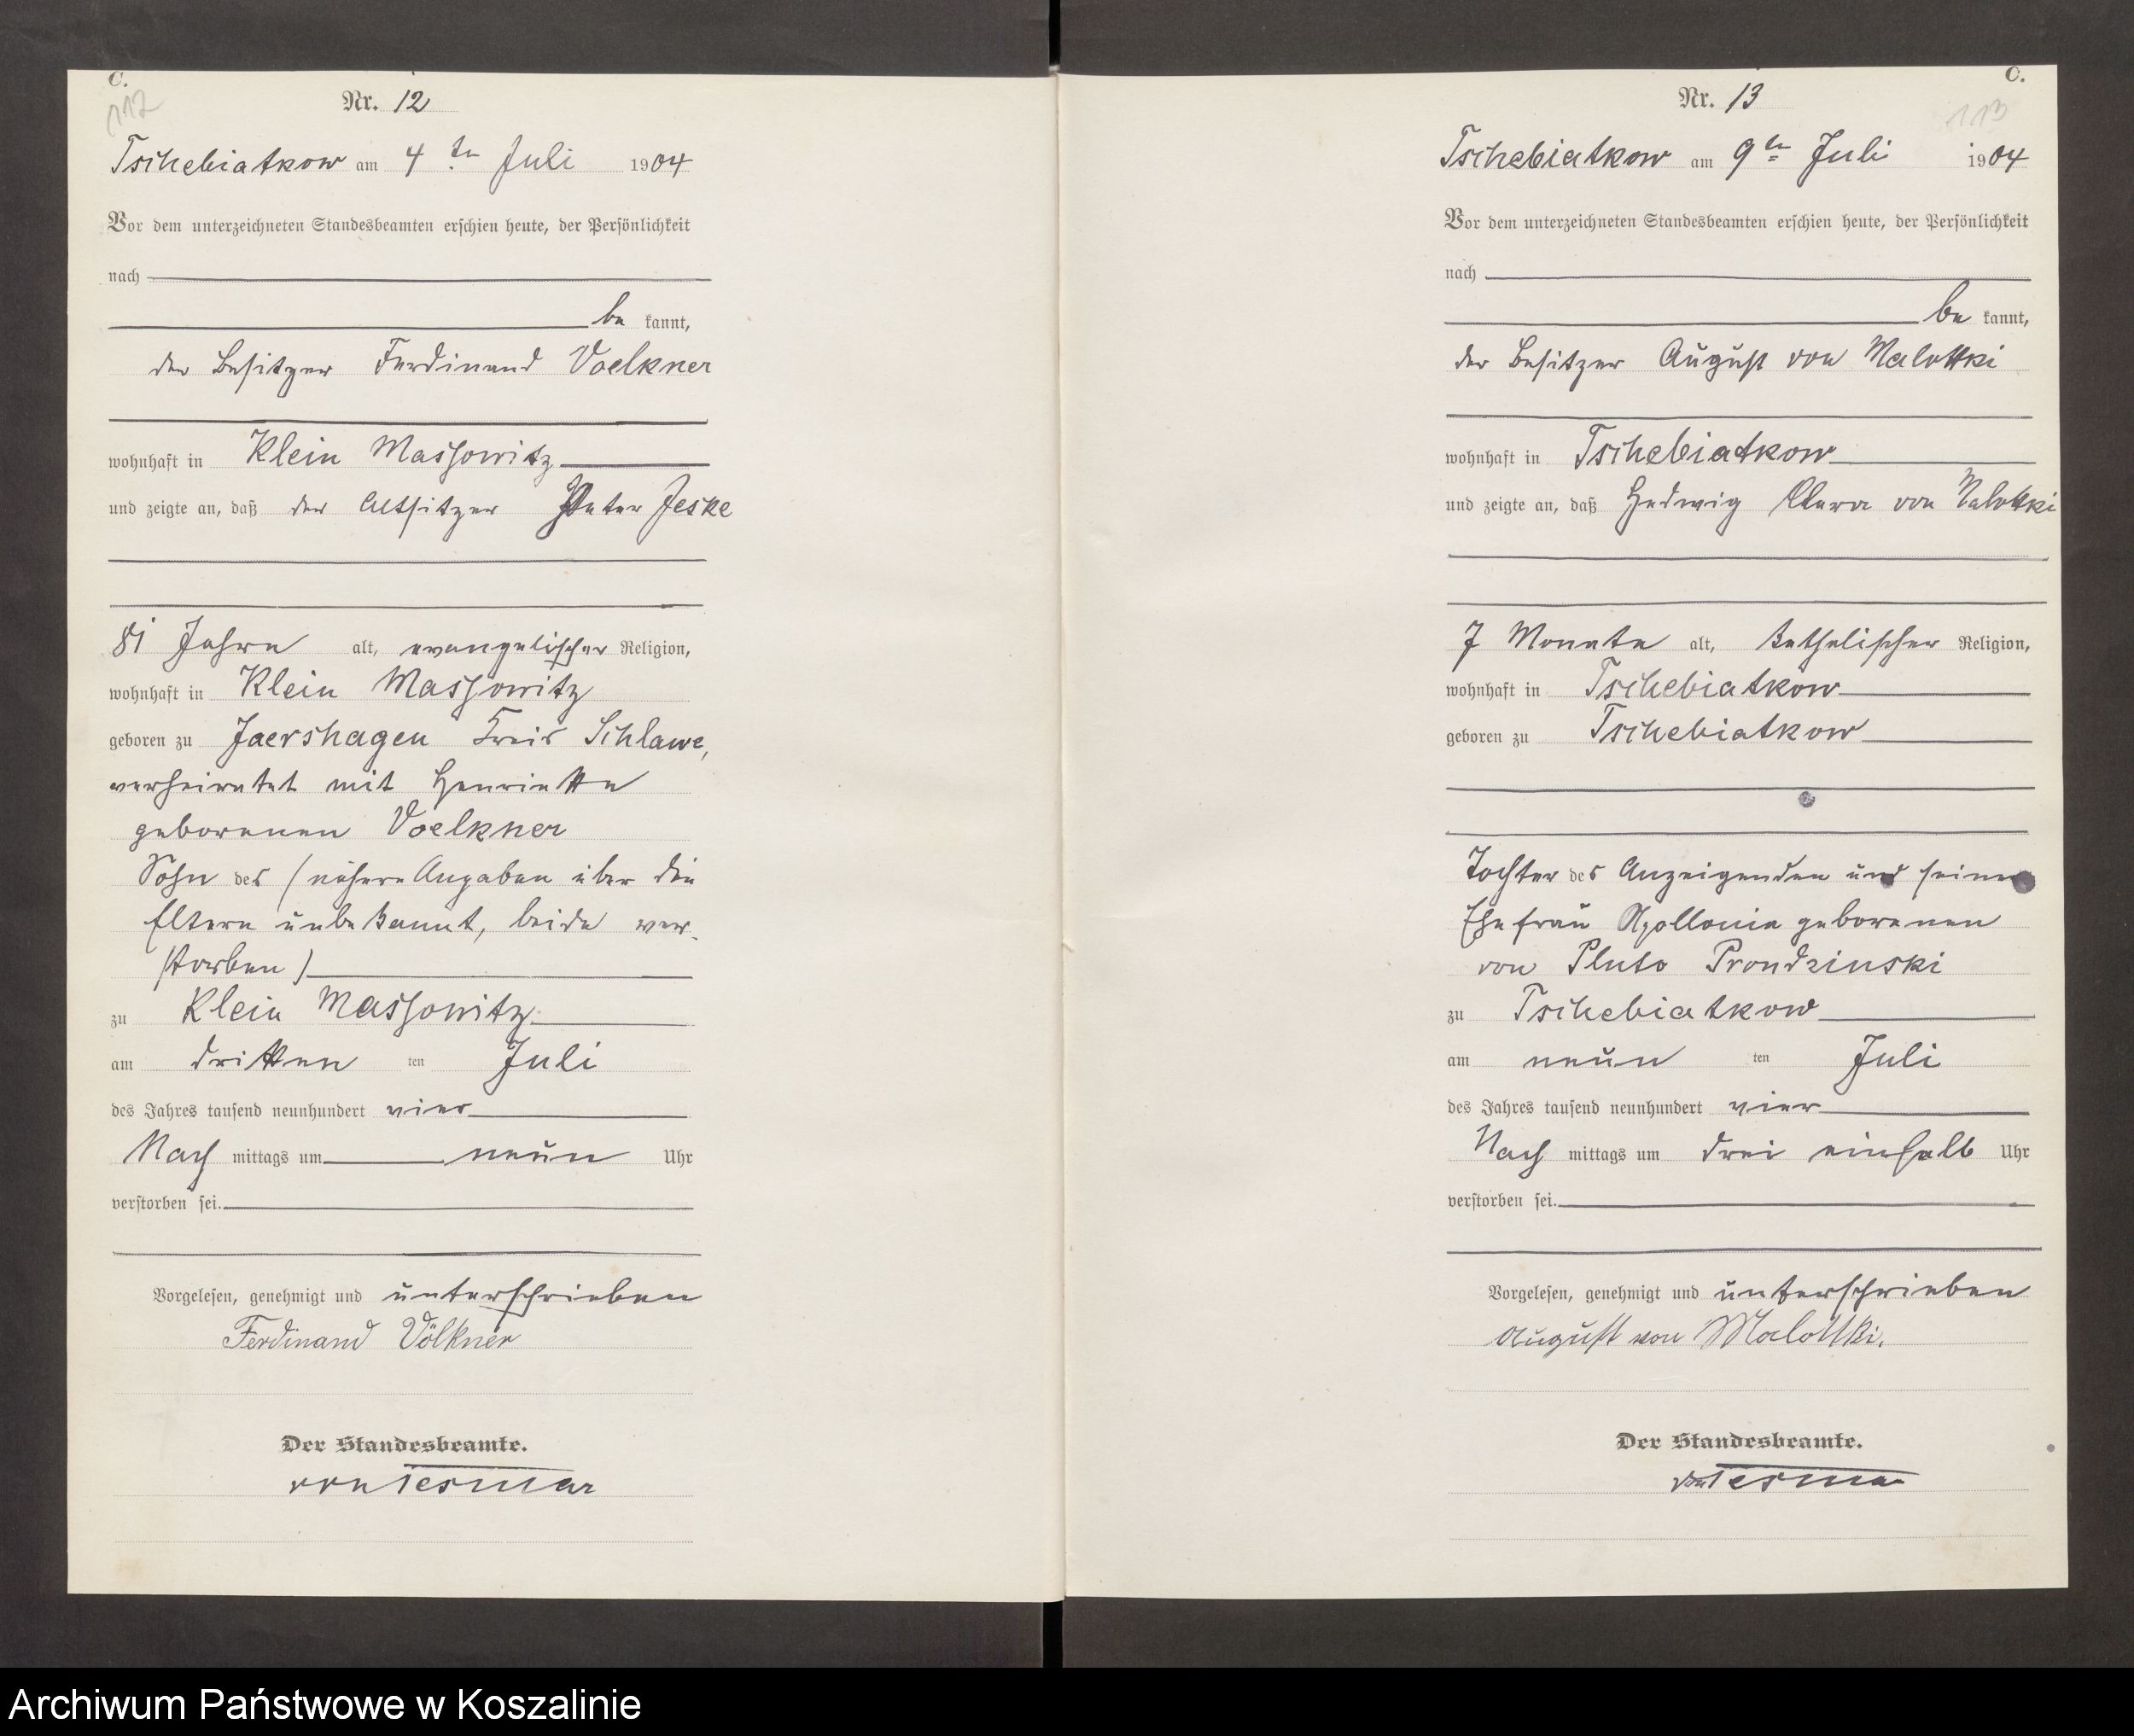 C.
112
Nr. 12
Tschebiatkow am 4ten Juli 1904
Vor dem unterzeichneten Standesbeamten erschien heute, der Persönlichkeit
nach
be kannt,
der Besitzer Ferdinand Voelkner
wohnhaft in Klein Massowitz
und zeigte an, daß der Altsitzer Peter Jeske
81 Jahre alt, evangelischer Religion,
wohnhaft in Klein Massowitz
geboren zu Jaershagen Kreis Schlawe,
verheiratet mit Henriette
geborenen Voelkner
Sohn des (nähere Angaben über die
Eltern unbekannt, beide ver-
storben)
zu Klein Massowitz
am dritten ten Juli
des Jahres tausend neunhundert vier
Nach mittags um neun Uhr
verstorben sei.
Vorgelesen, genehmigt und unterschrieben
Ferdinand Völkner
Der Standesbeamte.
von Tesmar
C.
113
Nr. 13
Tschebiatkow am 9ten Juli 1904
Vor dem unterzeichneten Standesbeamten erschien heute, der Persönlichkeit
nach
be kannt,
der Besitzer August von Malottki
wohnhaft in Tschebiatkow
und zeigte an, daß Hedwig Clara von Malottki
7 Monate alt, katholischer Religion,
wohnhaft in Tschebiatkow
geboren zu Tschebiatkow
Tochter des Anzeigenden und seiner
Ehefrau Apollonia geborenen
von Pluto Prondzinski
zu Tschebiatkow
am neun ten Juli
des Jahres tausend neunhundert vier
Nach mittags um drei einhalb Uhr
verstorben sei.
Vorgelesen, genehmigt und unterschrieben
August von Malottki.
Der Standesbeamte.
von Tesmar
Archiwum Państwowe w Koszalinie